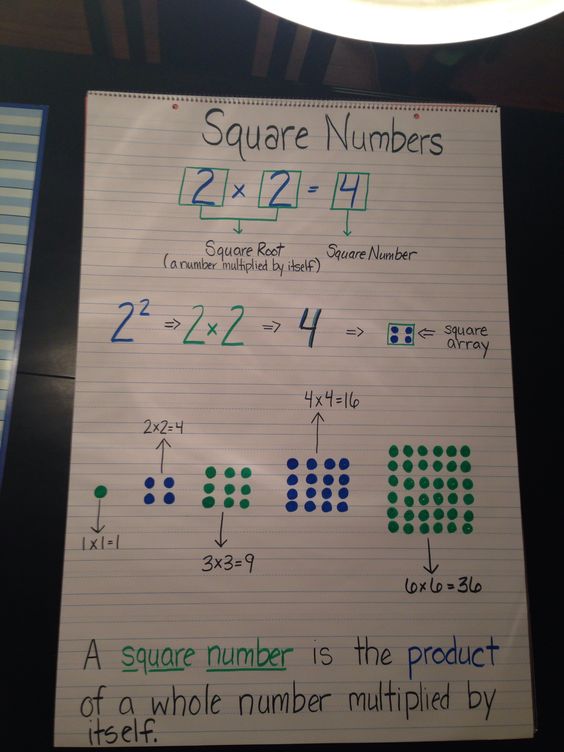 Square Numbers
2 × 2 = 4
Square Root
(a number multiplied by itself)
Square Number
2² ⇒ 2×2 ⇒ 4 ⇒ ⇐ square
array
4×4=16
2×2=4
1×1=1
3×3=9
6×6=36
A square number is the product
of a whole number multiplied by
itself.